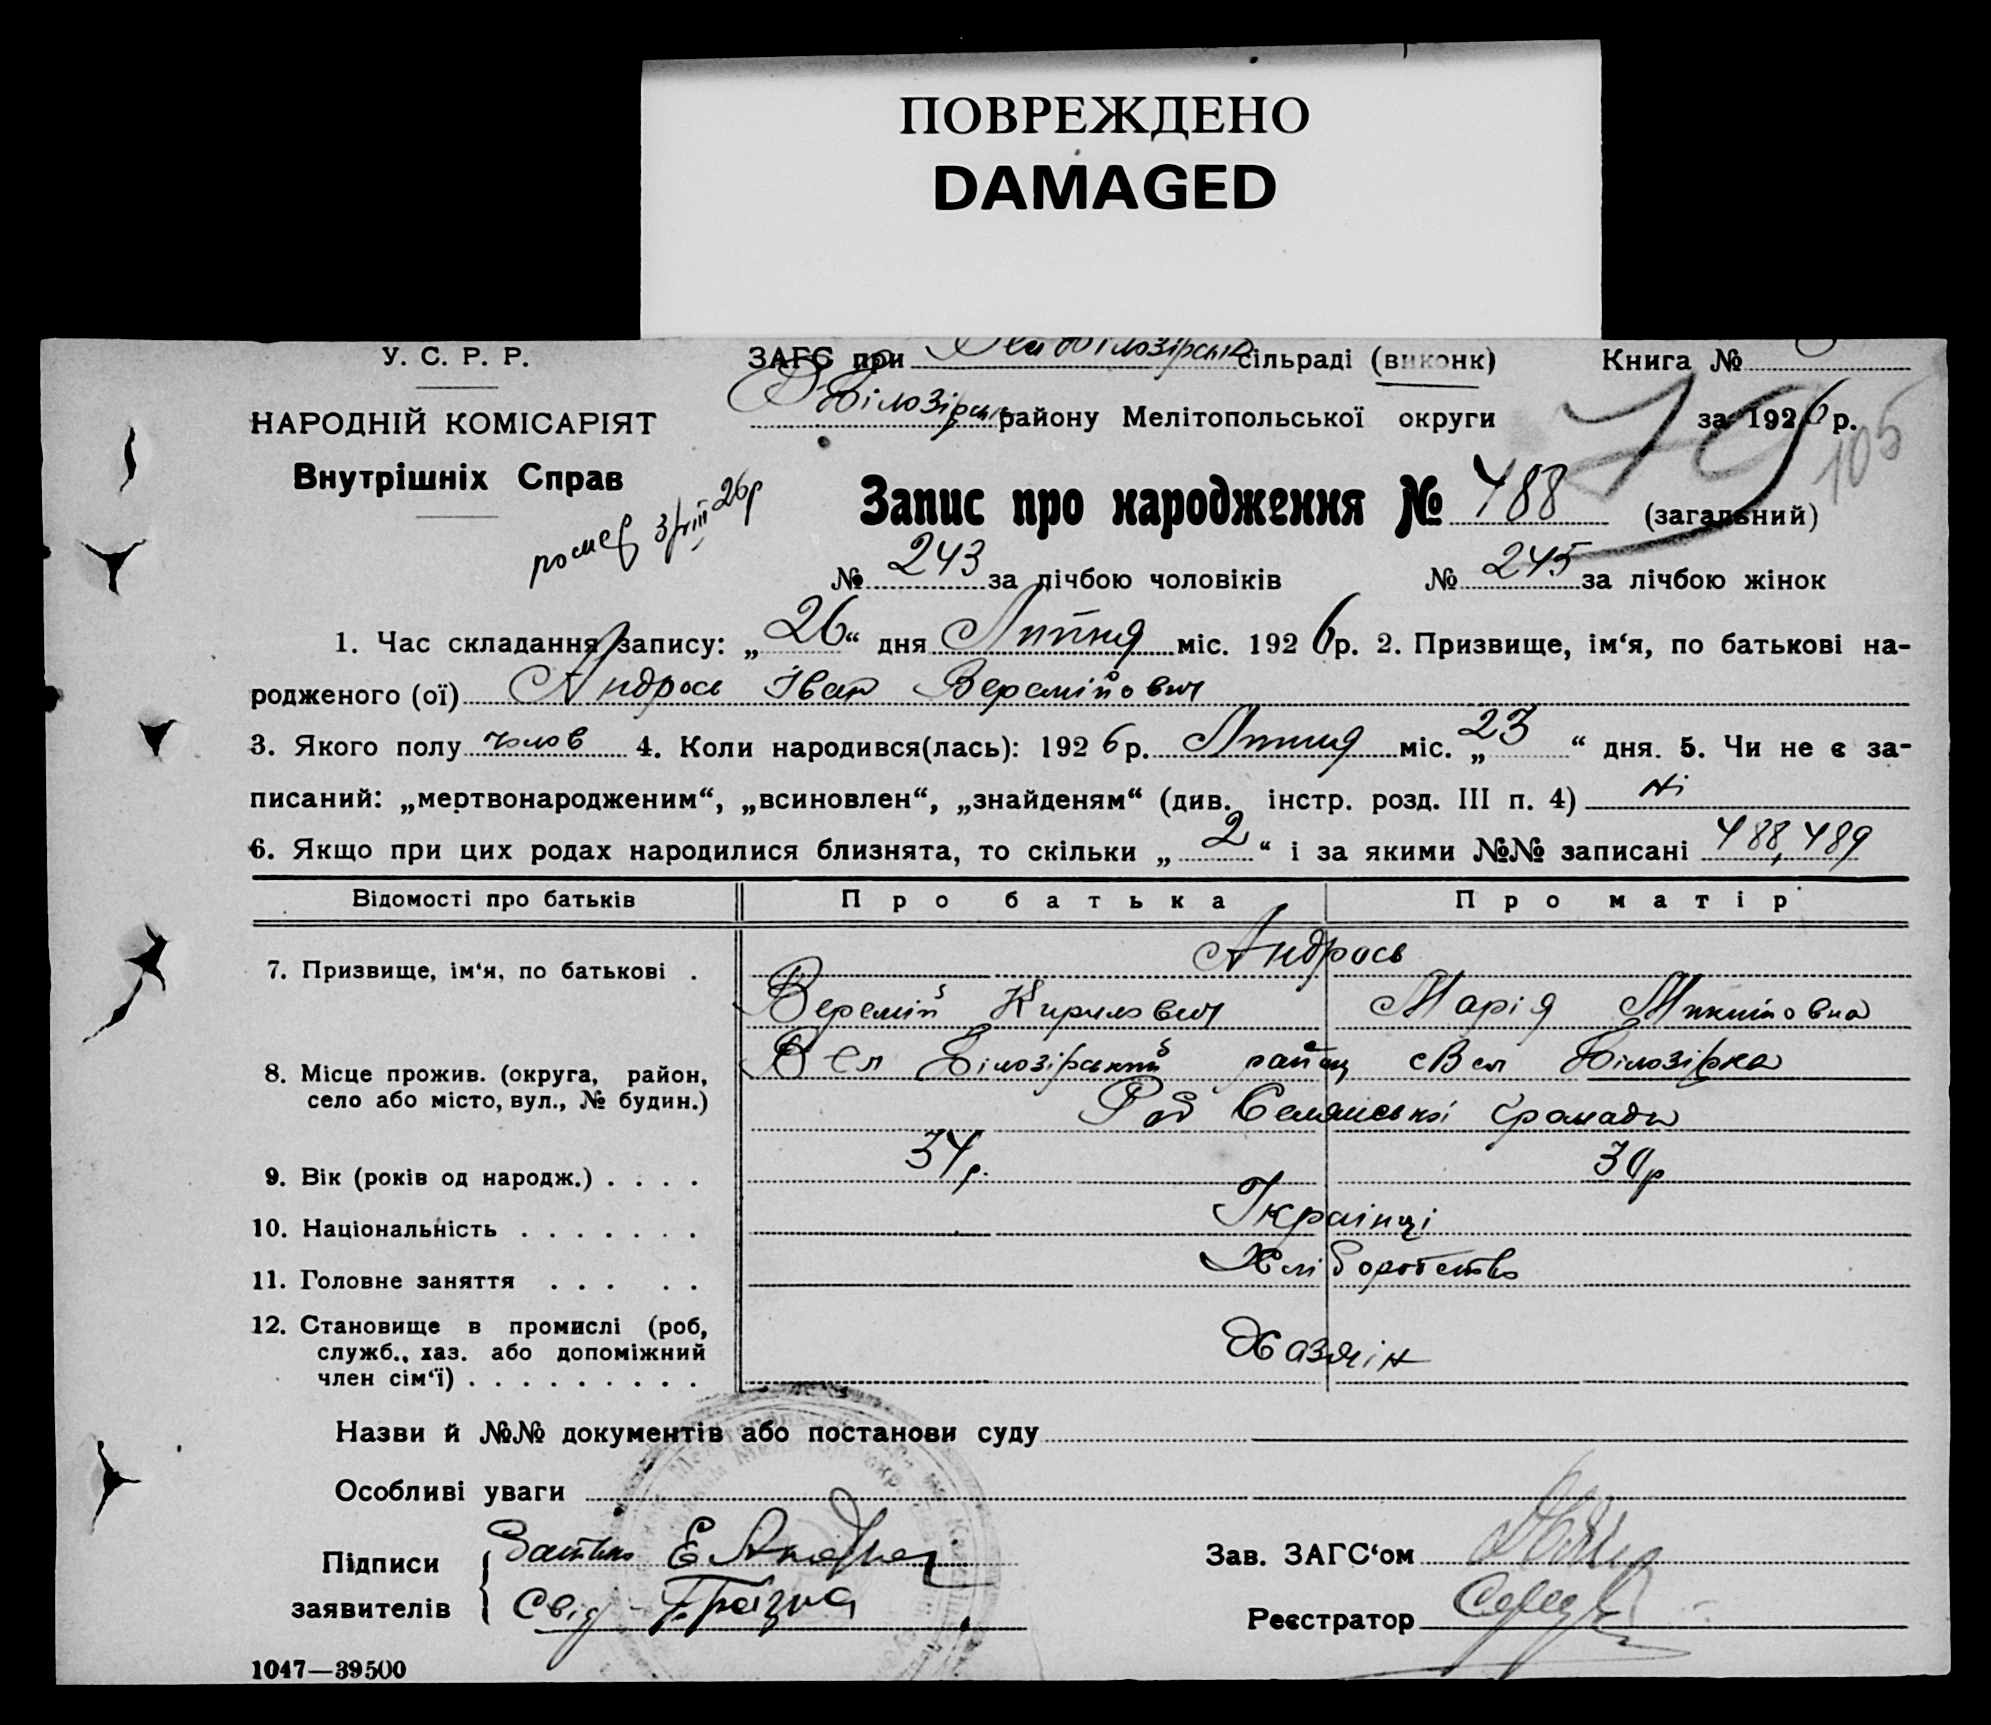 ПОВРЕЖДЕНО
DAMAGED
У. С. Р. Р.
ЗАГС при Вел Білозірськ сільраді (виконк)
Книга №
НАРОДНІЙ КОМІСАРІЯТ
В Білозірськ району Мелітопольської округи
за 1926 р.
79
105
Внутрішніх Справ
помер 3/VIII 26р
Запис про народження № 488 (загальний)
№ 243 за лічбою чоловіків
№ 245 за лічбою жінок
1. Час складання запису: „ 26 “ дня Липня міс. 192 6 р. 2. Призвище, ім‘я, по батькові на-
родженого (ої) Андрось Іван Веремійович
3. Якого полу чолов 4. Коли народився(лась): 192 6 р. Липня міс. „ 23 “ дня. 5. Чи не є за-
писаний: „мертвонародженим“, „всиновлен“, „знайденям“ (див. інстр. розд. III п. 4) ні
6. Якщо при цих родах народилися близнята, то скільки „ 2 “ і за якими №№ записані 488, 489
Відомості про батьків
Про батька
Про матір
7. Призвище, ім‘я, по батькові .
Андрось
Веремій Кирилович
Марія Микитовна
8. Місце прожив. (округа, район,
село або місто, вул., № будин.)
Вел Білозірський район с Вел Білозірка
Селянської громади
9. Вік (років од народж.) . . . .
34 р.
30 р
10. Національність . . . . . . .
Українці
11. Головне заняття . . . . .
Хліборобство
12. Становище в промислі (роб,
служб., хаз. або допоміжний
член сім‘ї) . . . . . . . . .
Хазяін
Назви й №№ документів або постанови суду
Особливі уваги
Підписи
заявителів
Батько Е Андрос
Свід - Грязна
Зав. ЗАГС‘ом
Реєстратор
1047—39500